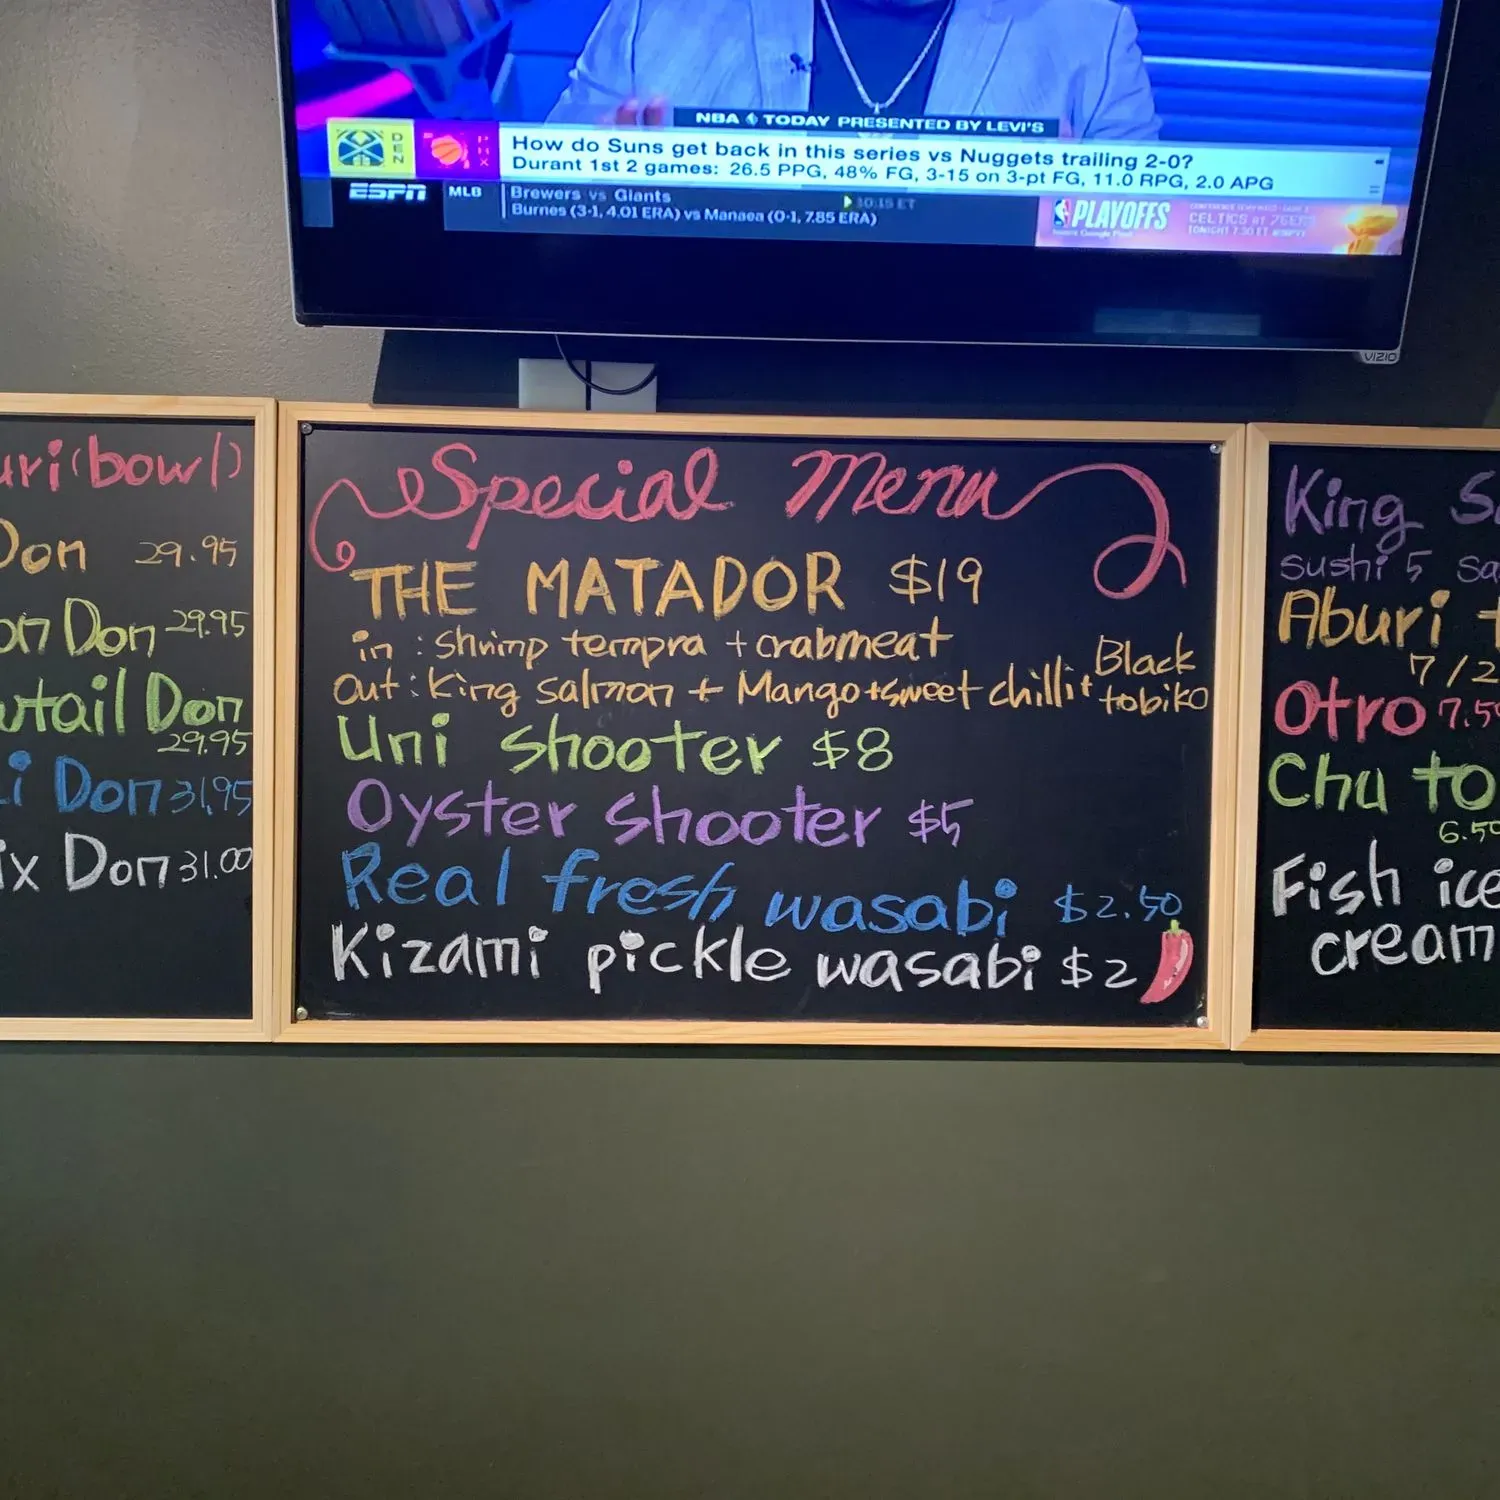 NBA TODAY PRESENTED BY LEVI'S
DEN
PHX
How do Suns get back in this series vs Nuggets trailing 2-0?
Durant 1st 2 games: 26.5 PPG, 48% FG, 3-15 on 3-pt FG, 11.0 RPG, 2.0 APG
ESPN
MLB
Brewers vs Giants
10:15 ET
Burnes (3-1, 4.01 ERA) vs Manaea (0-1, 7.85 ERA)
PLAYOFFS
CELTICS AT 76ERS
TONIGHT 7:30 ET
VIZIO
uri (bowl)
Don 29.95
on Don 29.95
wtail Don
29.95
i Don 31.95
ix Don 31.00
Special Menu
THE MATADOR $19
in : Shrimp tempra + crabmeat
Out : King Salmon + Mango + sweet chilli + Black tobiko
Uni shooter $8
Oyster shooter $5
Real fresh wasabi $2.50
Kizami pickle wasabi $2
King S
sushi 5 sa
Aburi t
7/2
Otro 7.5
Chu to
6.50
Fish ice
cream